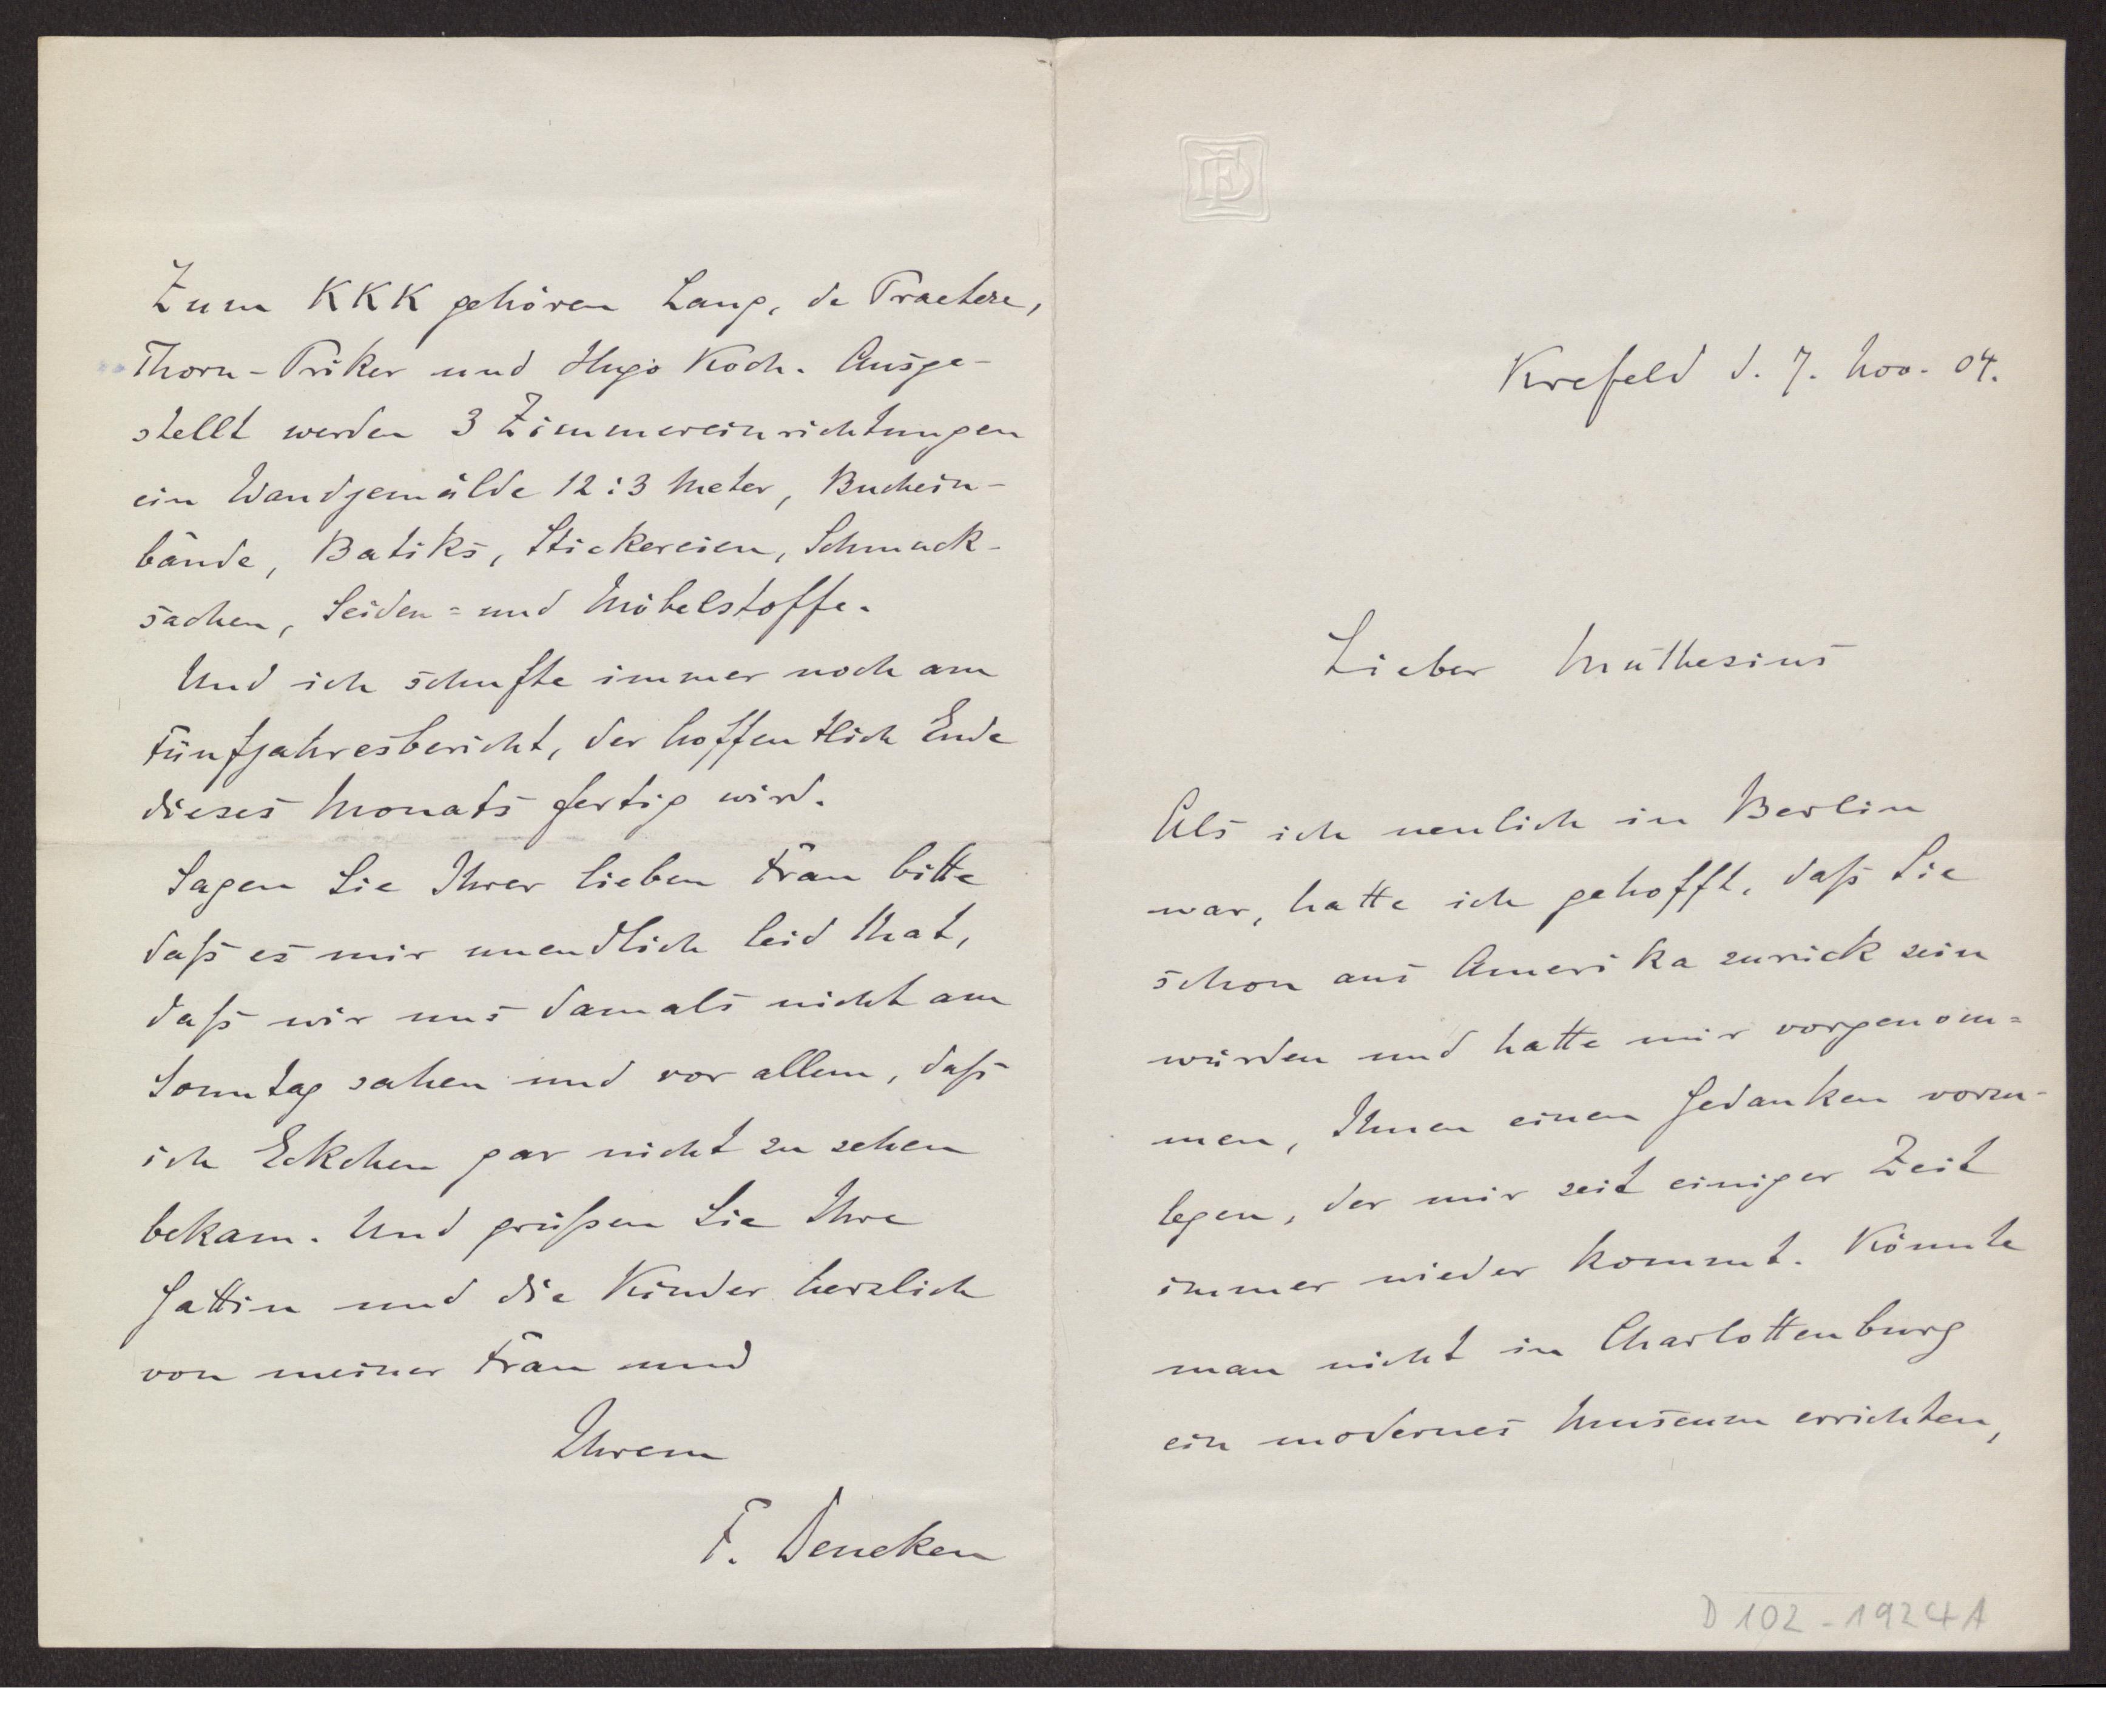 FD
Krefeld d. 7. Nov. 04.
Lieber Muthesius
Als ich neulich in Berlin
war, hatte ich gehofft, daß Sie
schon aus Amerika zurück sein
würden und hatte mir vorgenom=
men, Ihnen einen Gedanken vorzu-
legen, der mir seit einiger Zeit
immer wieder kommt. Könnte
man nicht in Charlottenburg
ein modernes Museum errichten,
D 102 - 1924 A
Zum KKK gehören Lang, de Praetere,
Thorn-Priker und Hugo Koch. Ausge-
stellt werden 3 Zimmereinrichtungen
ein Wandgemälde 12:3 Meter, Buchein-
bände, Batiks, Stickereien, Schmuck-
sachen, Seiden= und Möbelstoffe.
Und ich schufte immer noch am
Fünfjahresbericht, der hoffentlich Ende
dieses Monats fertig wird.
Sagen Sie Ihrer lieben Frau bitte
daß es mir unendlich leid that,
daß wir uns damals nicht am
Sonntag sahen und vor allem, daß
ich Eckchen gar nicht zu sehen
bekam. Und grüßen Sie Ihre
Gattin und die Kinder herzlich
von meiner Frau und
Ihrem
F. Deneken